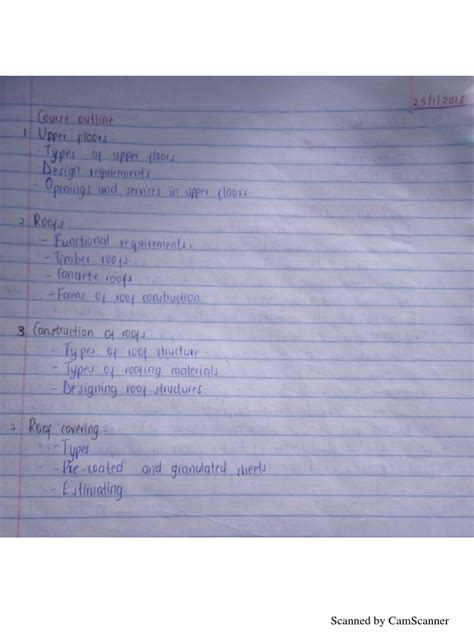 25/1/2018
Course outline:
1. Upper floors:
- Types of upper floors
Design requirements
- Openings and services in upper floors
2. Roofs:
- Functional requirements.
- Timber roofs.
- Concrete roofs
- Forms of roof construction
3. Construction of roofs.
- Types of roof structure
- Types of roofing materials
- Designing roof structures.
7. Roof covering:
- Types
- Pre-coated and granulated sheets.
- Estimating.
Scanned by CamScanner